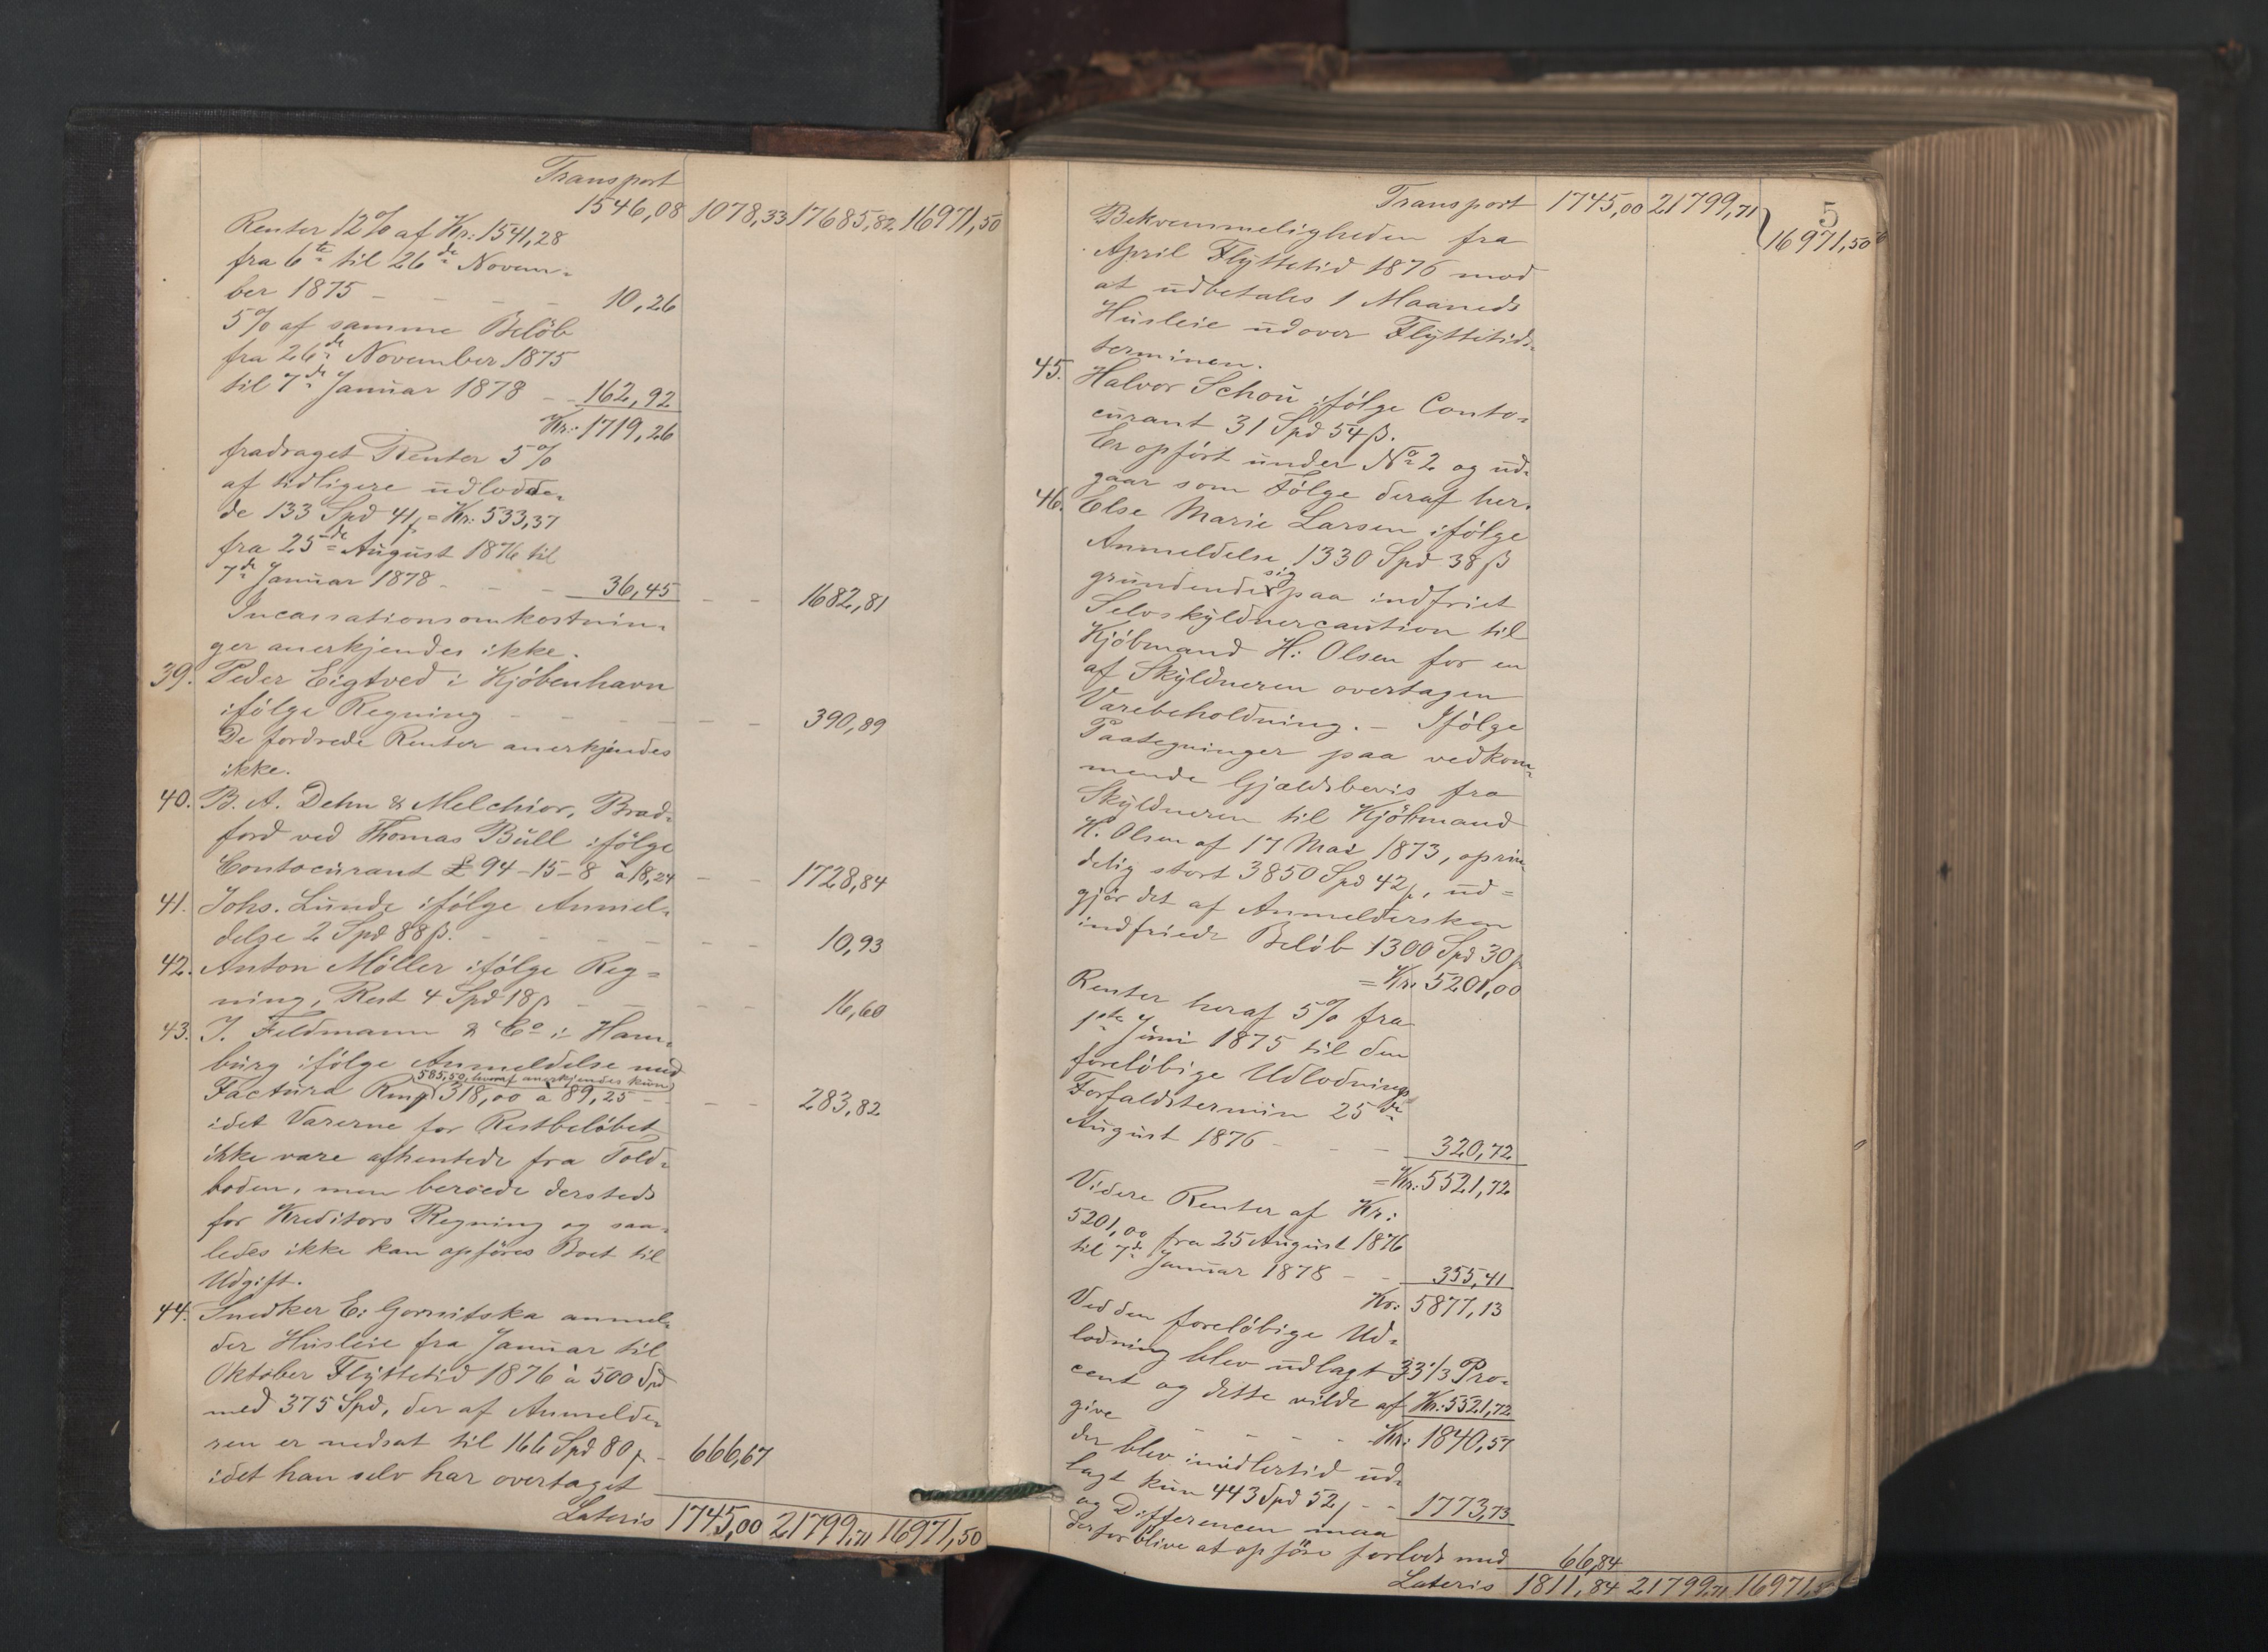 Transport
1546,08 1078,33 17685,82 16971,50
Renter 12% af Kr: 1541,28
fra 6te til 26de Novem-
ber 1875 - - - - 10,26
5% af samme Beløb
fra 26de November 1875
til 7de Januar 1878 - - 162,92
Kr: 1719,26
fradraget Renter 5%
af tidligere udlodde-
de 133 Spd 41 β = Kr: 533,37
fra 25de August 1876 til
7de Januar 1878 - - - 36,45 - - 1682,81
Incassationsomkostnin-
ger anerkjendes ikke.
39. Peder Eigtved i Kjöbenhavn
ifölge Regning - - - - - - 390,89
De fordrede Renter anerkjendes
ikke.
40. B. A. Dehn & Melchior, Brad-
ford ved Thomas Bull ifölge
Contocurant £ 94-15-8 à 18,24 - - 1728,84
41. Johs. Lunde ifölge Anmel-
delse 2 Spd 88 β. - - - - - - 10,93
42. Anton Möller ifölge Reg=
ning, Rest 4 Spd 18 β - - - - 16,60
43. J. Feldmann & Co i Ham-
burg ifölge Anmeldelse med
585,50, hvoraf anerkjendes kun
Factura Rmk 318,00 a 89,25 - - - - 283,82
idet Varerne for Restbelöbet
ikke vare afhentede fra Told-
boden, men beroede dersteds
for Kreditors Regning og saa-
ledes ikke kan opföres Boet til
Udgift.
44. Snedker E: Gornitska anmel-
der Husleie fra Januar til
Oktober Flyttetid 1876 à 500 Spd
med 375 Spd, der af Anmelde-
ren er nedsat til 166 Spd 80 β - 666,67
idet han selv har overtaget
Lateris 1745,00 21799,71 16971,50
5
Transport 1745,00 21799,71 16971,50
Bekvemmeligheden fra
April Flyttetid 1876 mod
at udbetales 1 Maaneds
Husleie udover Flyttetids-
terminen.
45. Halvor Schou ifölge Conto-
curant 31 Spd 54 β.
Er opfört under No 2 og ud-
gaar som Fölge deraf her.
46. Else Marie Larsen ifölge
Anmeldelse 1330 Spd 38 β
grundende sig paa indfriet
Selvskyldnercaution til
Kjöbmand H: Olsen for en
af Skyldneren overtagen
Varebeholdning. - Ifölge
Paategninger paa vedkom-
mende Gjældsbevis fra
Skyldneren til Kjöbmand
H. Olsen af 17 Mai 1873, oprin-
delig stort 3850 Spd 42 β, ud=
gjör det af Anmeldersken
indfriede Belöb 1300 Spd 30 β
= Kr: 5201,00
Renter heraf 5% fra
1ste Juni 1875 til den
foreløbige Udlodnings
Forfaldstermin 25de
August 1876 - - - 320,72
= Kr: 5521,72
Videre Renter af Kr:
5201,00 fra 25 August 1876
til 7de Januar 1878 - - 355,41
Kr: 5877,13
Ved den forelöbige Ud-
lodning blev udlagt 33 1/3 Pro-
cent og dette vilde af Kr: 5521,72
give - - - - Kr: 1840,57
der blev imidlertid ud-
lagt kun 443 Spd 52 β - - 1773,73
og Differencen maa
derfor blive at opföre forlods med 66,84
Lateris 1811,84 21799,71 16971,50